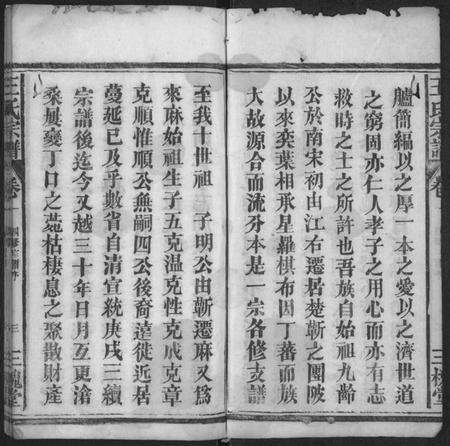 臚簡編以之厚一本之愛以之濟世道
之窮固亦仁人孝子之用心而亦有志
救時之士之所許也吾族自始祖九齡
公於南宋初由江右遷居楚蘄之團陂
以來奕葉相承星羅棋布因丁蕃而族
大故源合而流分本是一宗各修支譜
至我十世祖 子明公由蘄遷麻又爲
來麻始祖生子五克温克性克成克章
克順惟順公無嗣四公後裔遠徙近居
蔓延已及乎數省自清宣統庚戌三續
宗譜後迄今又越三十年日月互更滄
桑屢變丁口之菀枯棲息之聚散財產
王氏宗譜 卷一
三
三槐堂